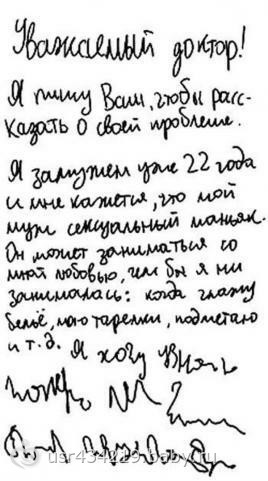 Уважаемый доктор!
Я пишу Вам, чтобы расс-
казать о своей проблеме.
Я замужем уже 22 года
и мне кажется, что мой
муж сексуальный маньяк.
Он может заниматься со
мной любовью, чем бы я ни
занималась: когда глажу
бельё, мою тарелки, подметаю
и т.д. Я хочу
usr434219.baby.ru